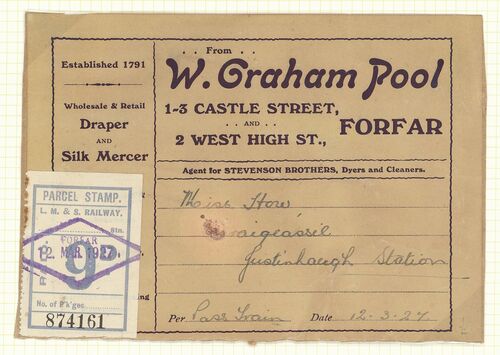 Established 1791
Wholesale & Retail
Draper
AND
Silk Mercer
. . From . .
W. Graham Pool
1-3 CASTLE STREET,
. . AND . .
2 WEST HIGH ST.,
FORFAR
Agent for STEVENSON BROTHERS, Dyers and Cleaners.
Miss How
Justinhaugh Station
Per Pass Train Date 12-3-27
PARCEL STAMP.
L. M. & S. RAILWAY.
Stn.
FORFAR
12 MAR 1927
9D
No. of P'k'ges
874161
ing